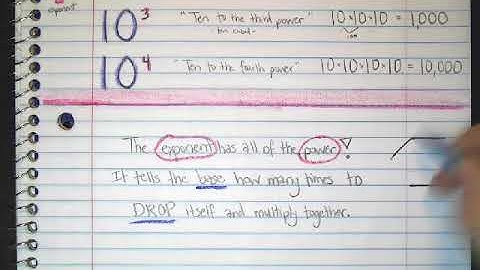 exponent
10³ "Ten to the third power" 10·10·10 = 1,000
"Ten cubed" 100
10⁴ "Ten to the fourth power" 10·10·10·10 = 10,000
The exponent has all of the power!
It tells the base how many times to
DROP itself and multiply together.